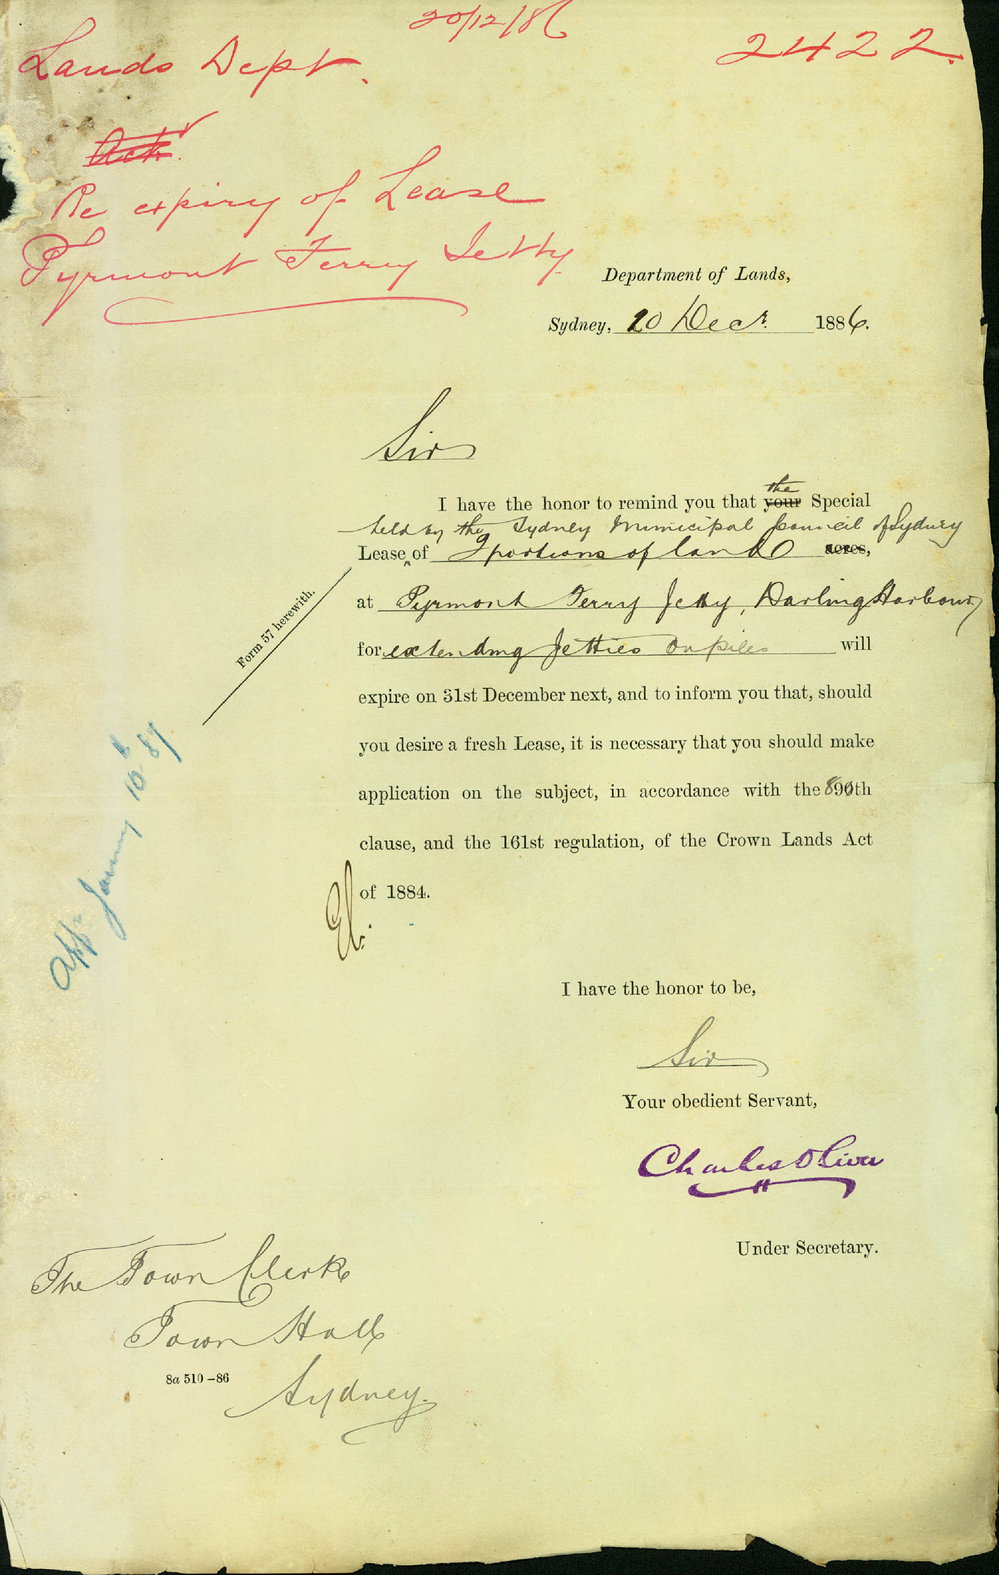 20/12/86
2422.
Lands Dept.
Ack.
Re expiry of Lease
Pyrmont Ferry Jetty
Department of Lands,
Sydney, 20 Decr. 1886.
Sir
I have the honor to remind you that your the Special
held by the Sydney Municipal Council of Sydney
Lease of 2 portions of land acres,
at Pyrmont Ferry Jetty, Darling Harbour,
for extending Jetties on piles will
expire on 31st December next, and to inform you that, should
you desire a fresh Lease, it is necessary that you should make
application on the subject, in accordance with the 90th
clause, and the 161st regulation, of the Crown Lands Act
of 1884.
Form 57 herewith.
I have the honor to be,
Sir
Your obedient Servant,
Charles Oliver
Under Secretary.
The Town Clerk
Town Hall
Sydney.
8a 510–86